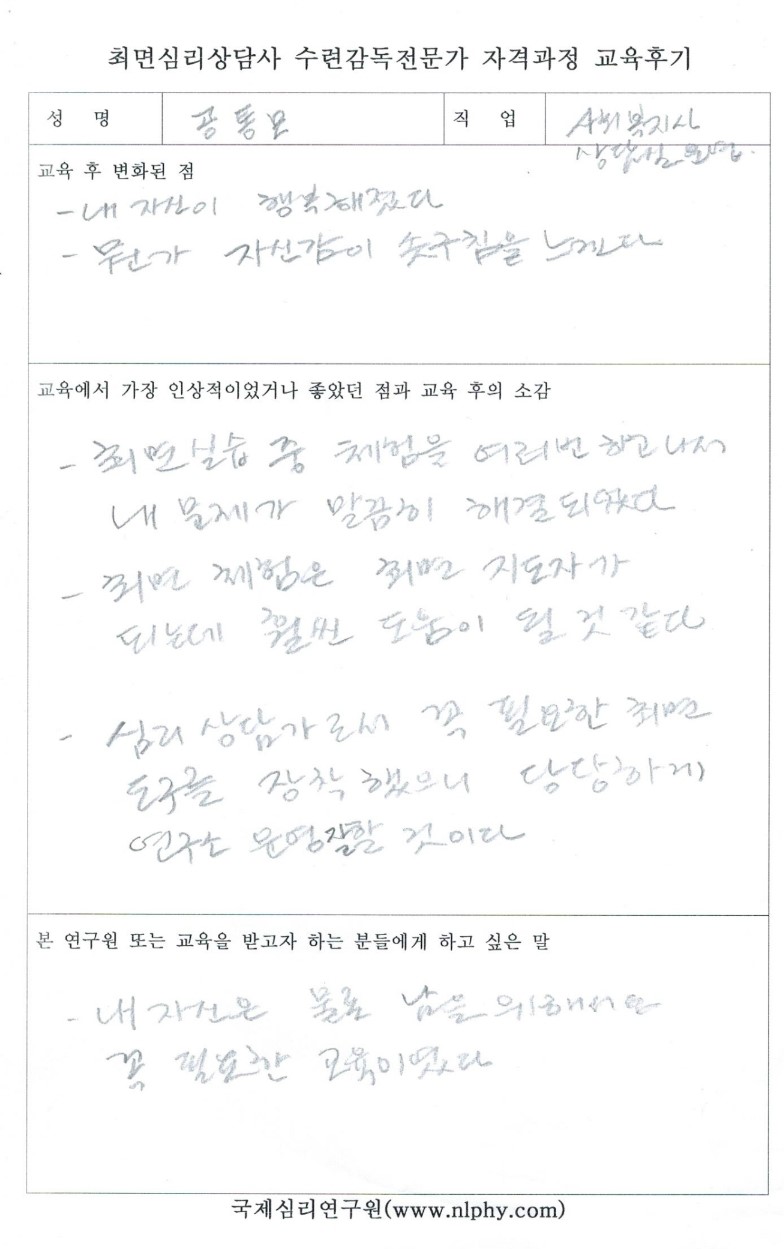 최면심리상담사 수련감독전문가 자격과정 교육후기
성 명 공통모 직 업 사회복지사
상담실 운영.
교육 후 변화된 점
- 내 자신이 행복해졌다
- 뭔가 자신감이 솟구침을 느낀다
교육에서 가장 인상적이었거나 좋았던 점과 교육 후의 소감
- 최면실습 중 체험을 여러번 하고 나서
내 문제가 말끔히 해결되었다
- 최면 체험은 최면 지도자가
되는데 훨씬 도움이 될 것 같다
- 심리 상담가로서 꼭 필요한 최면
도구를 장착했으니 당당하게
연구소 운영잘할 것이다
본 연구원 또는 교육을 받고자 하는 분들에게 하고 싶은 말
- 내 자신은 물론 남을 위해서도
꼭 필요한 교육이었다
국제심리연구원(www.nlphy.com)